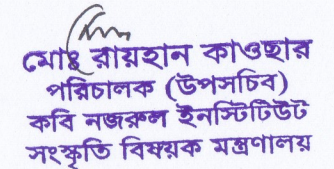 মোঃ রায়হান কাওছার
পরিচালক (উপসচিব)
কবি নজরুল ইনস্টিটিউট
সংস্কৃতি বিষয়ক মন্ত্রণালয়